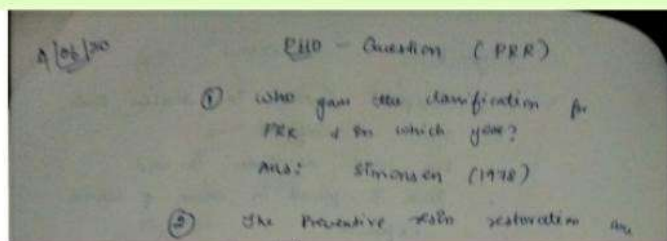 9/06/20
PHD - Question (PRR)
① who gave the classification for
PRR & in which year?
Ans: Simonsen (1978)
② The Preventive resin restoration are